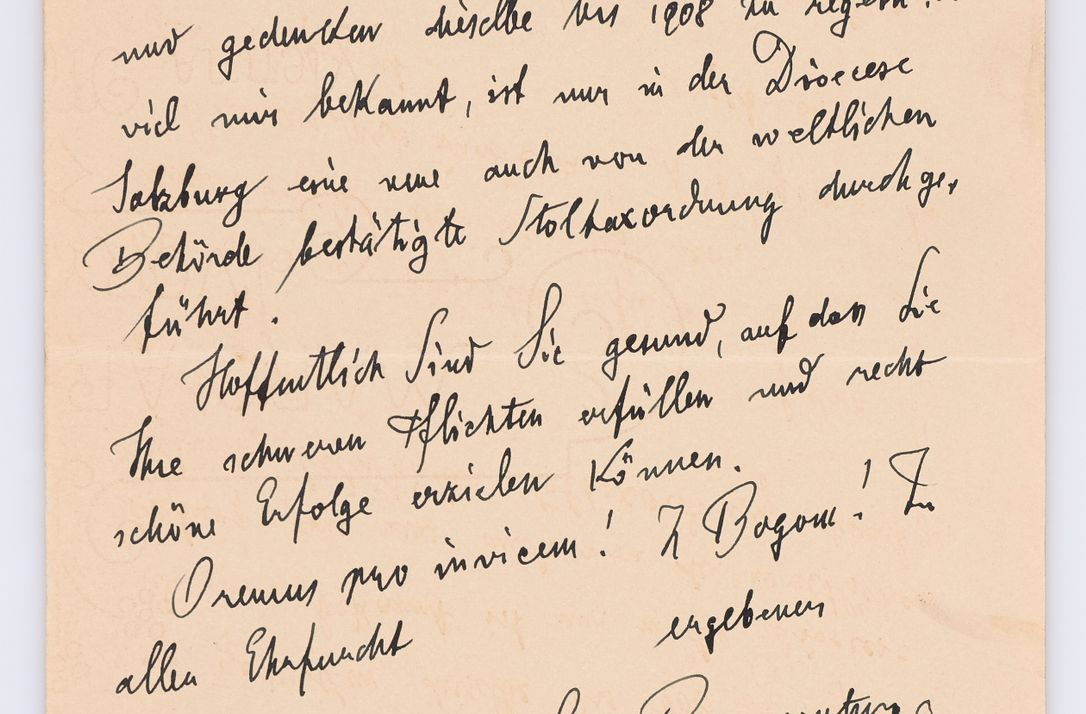 und gedenken dieselbe bis 1908 zu regeln. So
viel mir bekannt, ist nur in der Dioecese
Salzburg eine neue auch von der weltlichen
Behörde bestätigte Stoltaxordnung durchge,
führt.
Hoffentlich sind Sie gesund, auf dass Sie
Ihre schweren Pflichten erfüllen und recht
schöne Erfolge erzielen können.
Oremus pro invicem! Z Bogom! In
aller Ehrfurcht ergebener